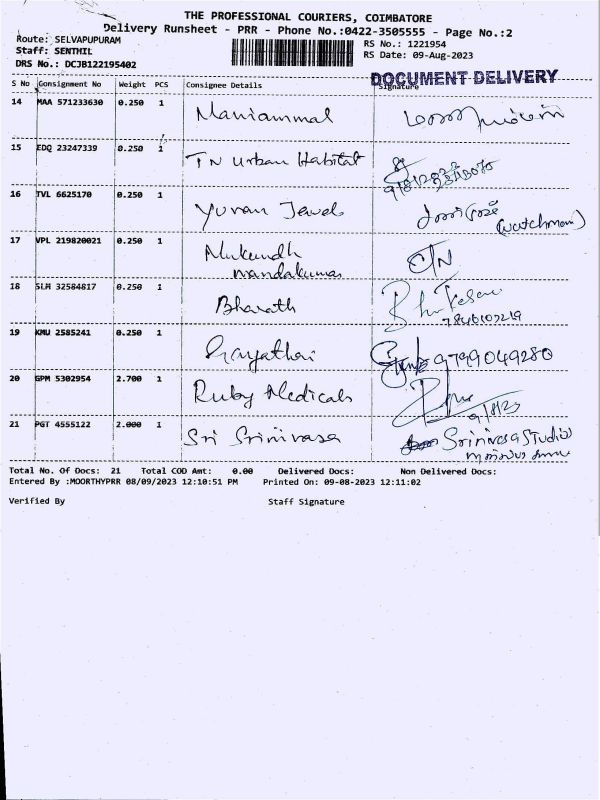 THE PROFESSIONAL COURIERS, COIMBATORE
Delivery Runsheet - PRR - Phone No.:0422-3505555 - Page No.:2
Route: SELVAPUPURAM
RS No.: 1221954
Staff: SENTHIL
RS Date: 09-Aug-2023
DRS No.: DCJB122195402
DOCUMENT DELIVERY
S No Consignment No Weight PCS Consignee Details Signature
14 MAA 571233630 0.250 1 Mariammal
15 EDQ 23247339 0.250 1 TN Urban Habitat
16 TVL 6625170 0.250 1 Yuvan Jewels
(watchman)
17 VPL 219820021 0.250 1 Mukundh
nandakumar C/N
18 SLM 32584817 0.250 1 Bharath
7846103219
19 KMU 2585241 0.250 1 Gayathri 9799049280
20 GPM 5302954 2.700 1 Ruby Medicals
9/8/23
21 PGT 4555122 2.000 1 Sri Srinivasa Srinivasa Studio
Total No. Of Docs: 21 Total COD Amt: 0.00 Delivered Docs: Non Delivered Docs:
Entered By :MOORTHYPRR 08/09/2023 12:10:51 PM Printed On: 09-08-2023 12:11:02
Verified By Staff Signature